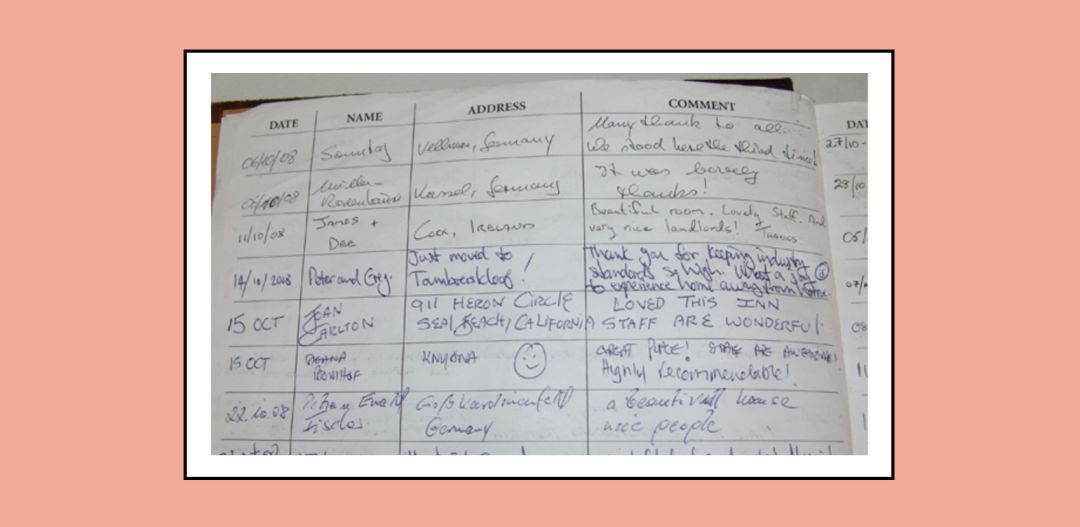 DATE NAME ADDRESS COMMENT
06/10/08 Sonntag Vellmar, Germany Many thank to all
We stood here the third time!
06/10/08 Kassel, Germany It was
thanks!
11/10/08 JAMES + DEE CORK, IRELAND Beautiful room. Lovely Staff. And
very nice landlords! Thanks
14/10/2008 Peter and Greg. Just moved to Tamboerskloof! Thank you for keeping industry
standards so high. What a joy
to experience home away from home.
15 OCT JEAN CARLTON 911 HERON CIRCLE LOVED THIS INN
SEAL BEACH, CALIFORNIA STAFF ARE WONDERFUL
15 OCT DEANA KNYSNA GREAT PLACE! STAFF ARE AWESOME!
Highly recommendable!
22.10.08 Germany a beautiful house
nice people
DAT
27/10-